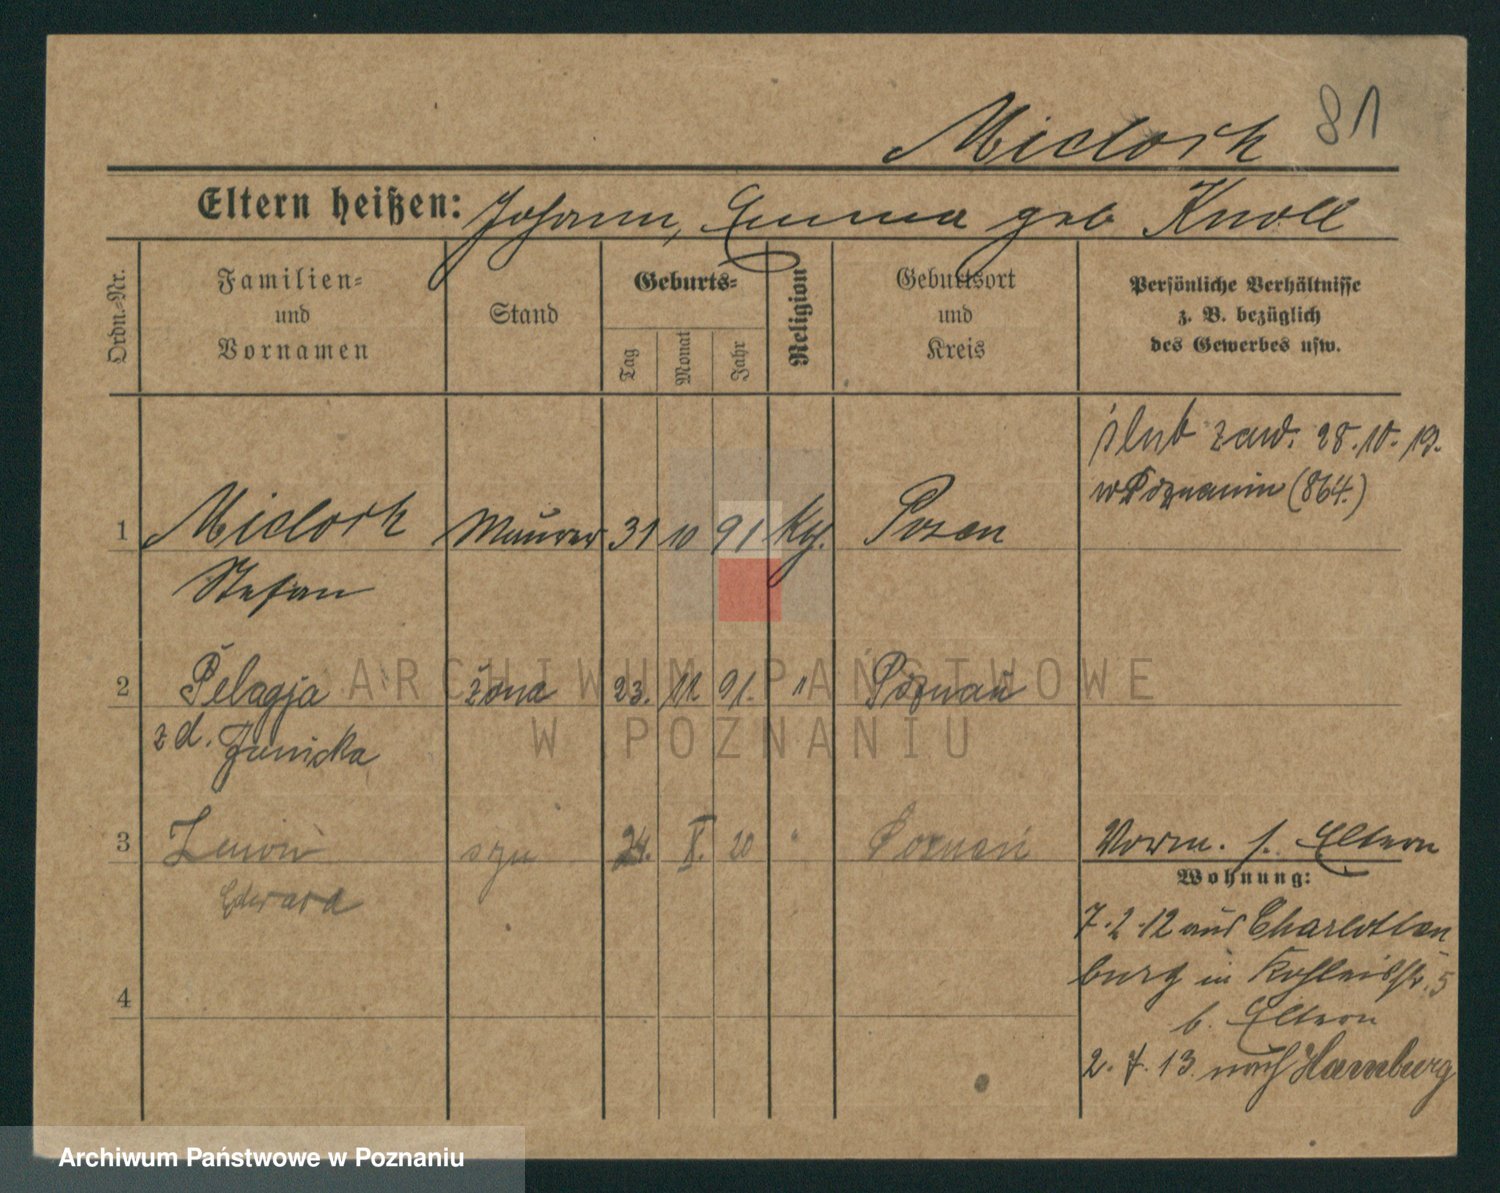 Miclosh 81
Eltern heißen: Johann, Emma geb Knoll
Ordn.-Nr.
Familien-
und
Vornamen
Stand
Geburts-
Tag
Monat
Jahr
Religion
Geburtsort
und
Kreis
Persönliche Verhältnisse
z. B. bezüglich
des Gewerbes usw.
ślub zaw. 28.10.19.
w Poznaniu (864.)
1 Miclosh Maurer 31 10 91 Kg. Posen
Stefan
2 Pelagja żona 23. 11 91. " Poznań
z d. Junicka
3 Zenon syn 24. X. 20 " Poznań
Edward
Vorm. s. Eltern
Wohnung:
7.2.12 aus Charlotten
burg in 5
b. Eltern
2. 7. 13. nach Hamburg
4
ARCHIWUM PAŃSTWOWE
W POZNANIU
Archiwum Państwowe w Poznaniu